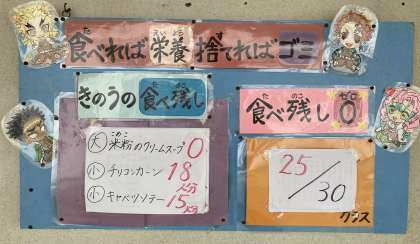 食べれば栄養 捨てればゴミ
きのうの食べ残し
㊅米粉のクリームスープ 0
㋛チリコンカーン 18人分
㋛キャベツソテー 15人分
食べ残し0
25/30
クラス